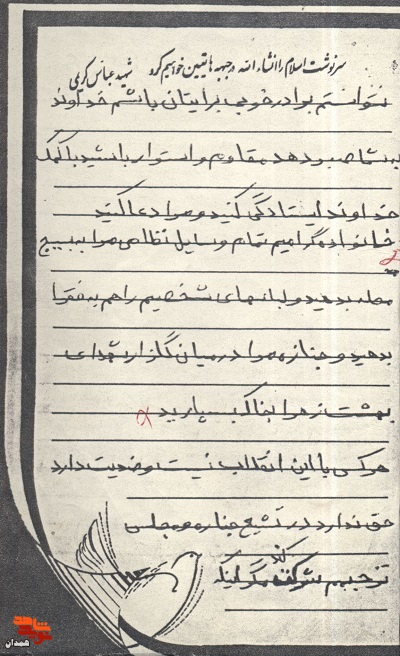 سرنوشت اسلام را انشاء الله در جبهه ها تعیین خواهیم کرد شهید عباس کریمی
نتوانستم برادر خوبی برایتان باشم خداوند
به شما صبر دهد مقاوم و استوار باشید با کمک
خداوند استادگی کنید و مرا دعا کنید
خانواده گرامیم تمام وسایل نظامی مرا به بسیج
محله بدهید و لباسهای شخصیم را هم به فقرا
بدهید و جنازه مرا در میان گلزار شهدای
بهشت زهرا بخاک بسپارید
هر کسی با این انقلاب نیست و ضدیت دارد
حق ندارد در تشیع جنازه و مجلس
ترحیم شرکت کند مگر اینکه
شاهد
همدان